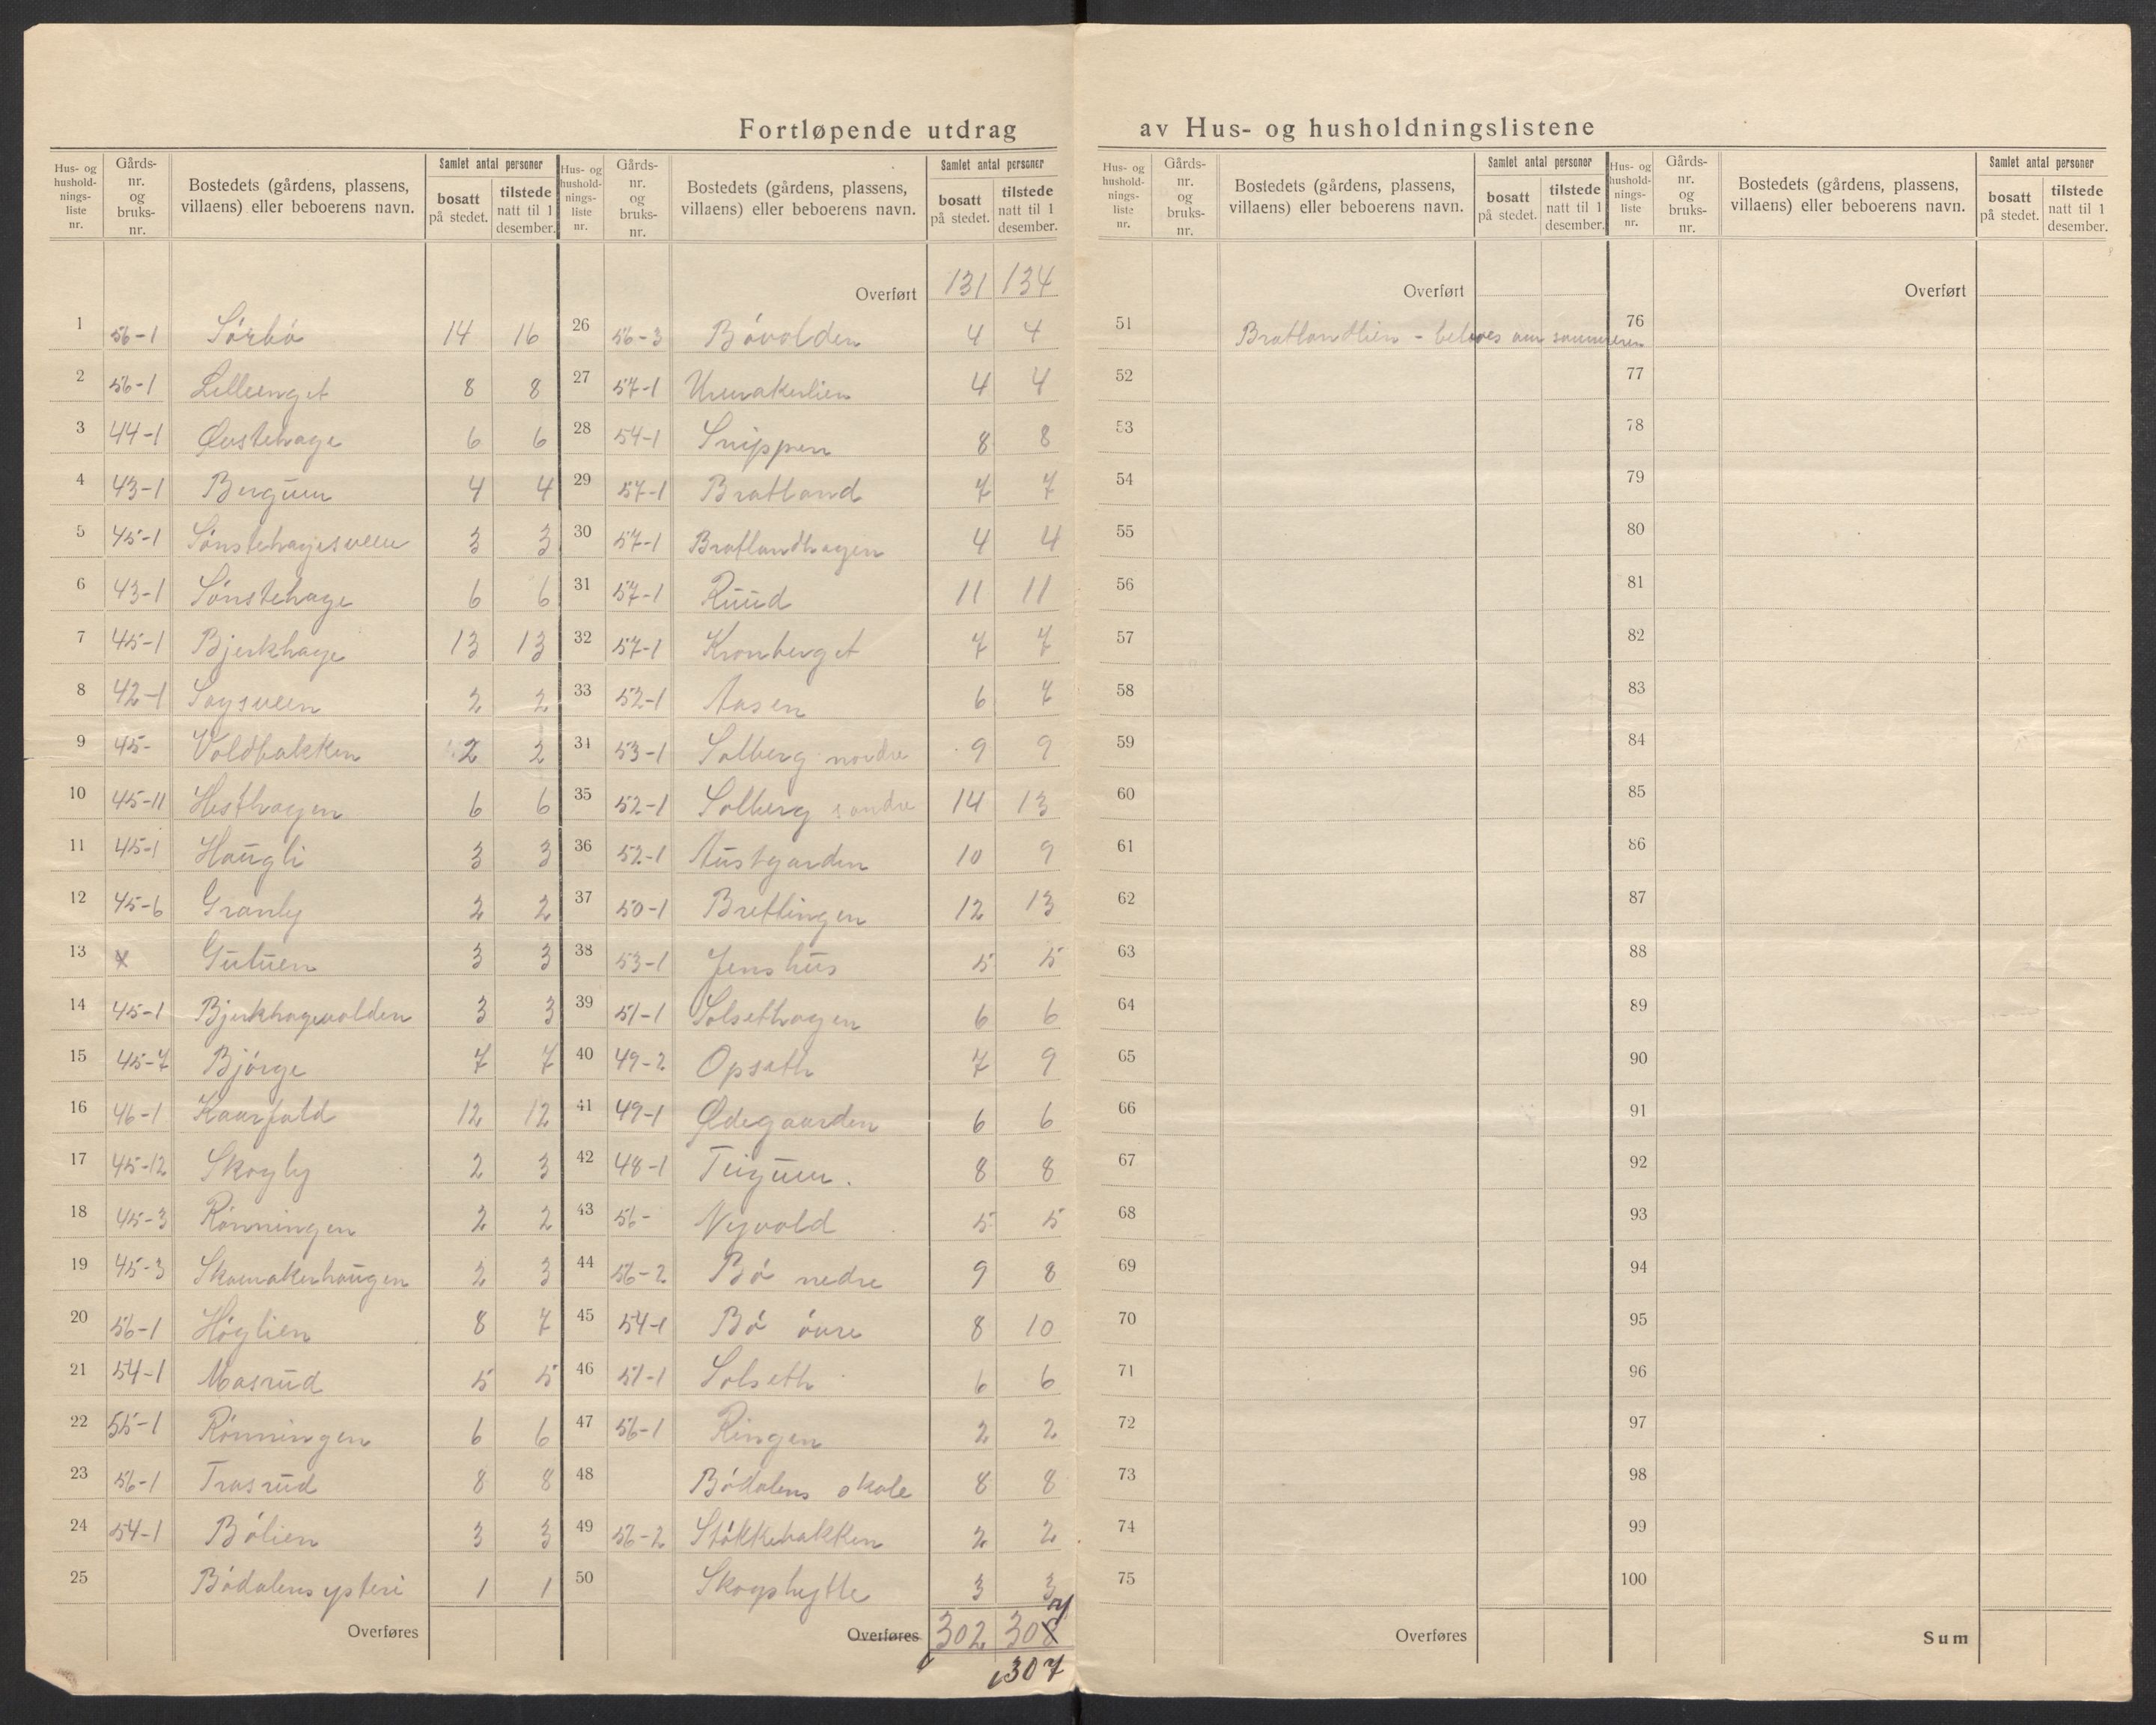 Fortløpende utdrag av Hus- og husholdningslistene
Hus- og husholdnings-liste nr. | Gårds-nr. og bruks-nr. | Bostedets (gårdens, plassens, villaens) eller beboerens navn. | Samlet antal personer bosatt på stedet. | tilstede natt til 1 desember.
1 56-1 Sørbø 14 16
2 56-1 Lilleenget 8 8
3 44-1 Øvstehage 6 6
4 43-1 Bergum 4 4
5 45-1 Sønstehagesveen 3 3
6 43-1 Sønstehage 6 6
7 45-1 Bjerkhage 13 13
8 42-1 Sagsveen 2 2
9 45- Voldbakken 2 2
10 45-11 Hesthagen 6 6
11 45-1 Haugli 3 3
12 45-6 Granly 2 2
13 x Gutuen 3 3
14 45-1 Bjerkhagevolden 3 3
15 45-7 Bjørge 7 7
16 46-1 Kaarfald 12 12
17 45-12 Skogly 2 3
18 45-3 Rønningen 2 2
19 45-3 Skomakerhaugen 2 3
20 56-1 Høglien 8 7
21 54-1 Masrud 5 5
22 55-1 Rønningen 6 6
23 56-1 Trasrud 8 8
24 54-1 Bølien 3 3
25 Bødalens ysteri 1 1
Overføres
Hus- og husholdnings-liste nr. | Gårds-nr. og bruks-nr. | Bostedets (gårdens, plassens, villaens) eller beboerens navn. | Samlet antal personer bosatt på stedet. | tilstede natt til 1 desember.
Overført 131 134
26 56-3 Bøvolden 4 4
27 57-1 Urmakerlien 4 4
28 54-1 Snippen 8 8
29 57-1 Bratland 7 7
30 57-1 Bratlandhagen 4 4
31 57-1 Ruud 11 11
32 57-1 Kronberget 7 7
33 52-1 Aasen 6 7
34 53-1 Solberg nordre 9 9
35 52-1 Solberg søndre 14 13
36 52-1 Austgarden 10 9
37 50-1 Bretlingen 12 13
38 53-1 Jenshus 5 5
39 51-1 Solsethagen 6 6
40 49-2 Opseth 7 9
41 49-1 Ødegaarden 6 6
42 48-1 Teigum. 8 8
43 56- Nyvold 5 5
44 56-2 Bø nedre 9 8
45 54-1 Bø øvre 8 10
46 51-1 Solseth 6 6
47 56-1 Ringen 2 2
48 Bødalens skole 8 8
49 56-2 Støkkebakken 2 2
50 Skogshytte 3 3
Overføres 302 308 7
307
Hus- og husholdnings-liste nr. | Gårds-nr. og bruks-nr. | Bostedets (gårdens, plassens, villaens) eller beboerens navn. | Samlet antal personer bosatt på stedet. | tilstede natt til 1 desember.
Overført
51 Bratlandlien - beboes om sommeren
52
53
54
55
56
57
58
59
60
61
62
63
64
65
66
67
68
69
70
71
72
73
74
75
Overføres
Hus- og husholdnings-liste nr. | Gårds-nr. og bruks-nr. | Bostedets (gårdens, plassens, villaens) eller beboerens navn. | Samlet antal personer bosatt på stedet. | tilstede natt til 1 desember.
Overført
76
77
78
79
80
81
82
83
84
85
86
87
88
89
90
91
92
93
94
95
96
97
98
99
100
Sum